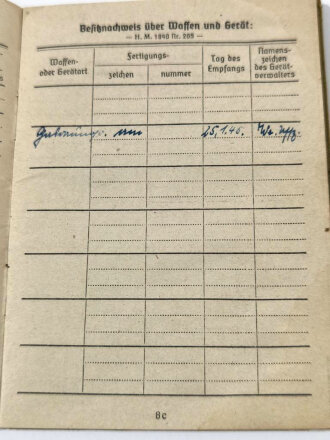 Besitznachweis über Waffen und Gerät:
— H. M. 1940 Nr. 289 —
Waffen- oder Geräteart
Fertigungs-
zeichen
nummer
Tag des Empfangs
Namens-
zeichen
des Gerät-
verwalters
25.1.45.
8c